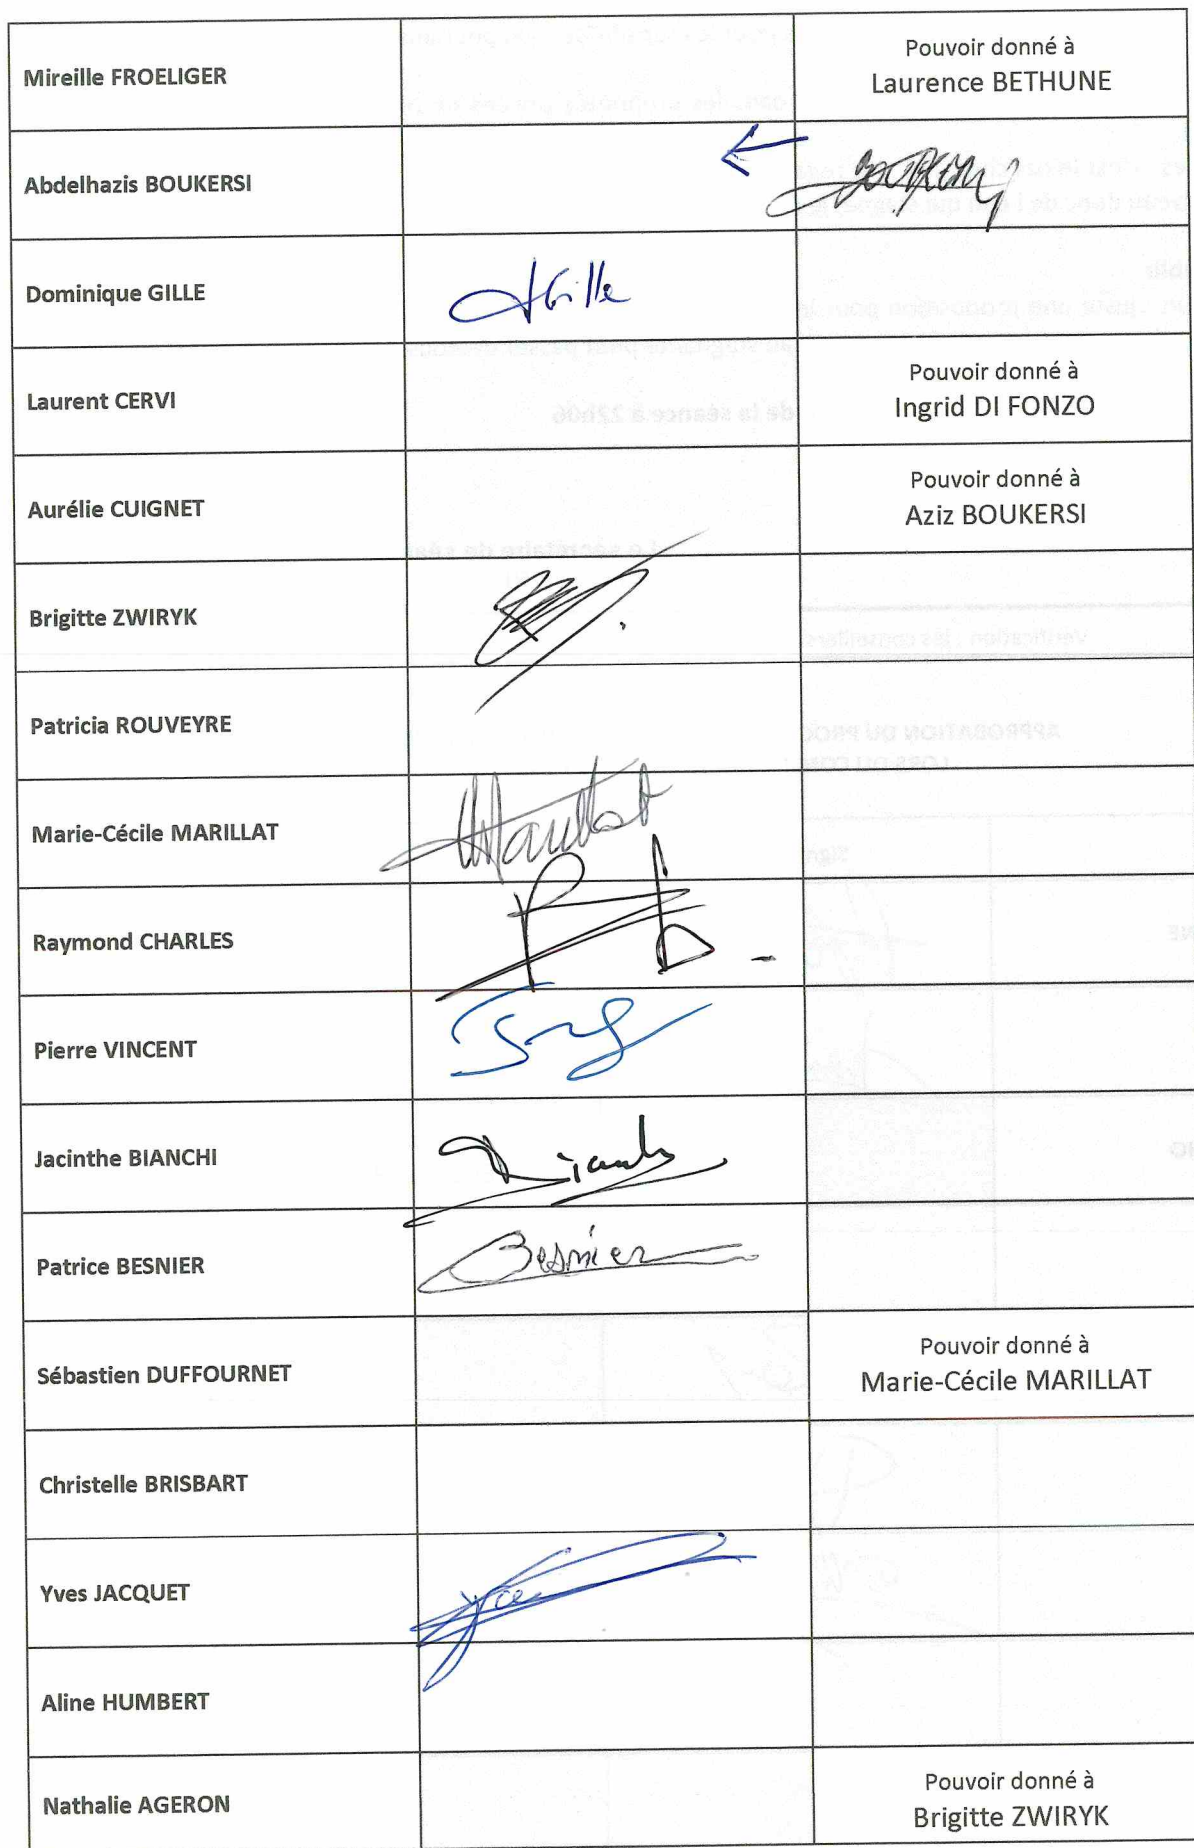 Mireille FROELIGER
Pouvoir donné à
Laurence BETHUNE
Abdelhazis BOUKERSI
Dominique GILLE
Gille
Laurent CERVI
Pouvoir donné à
Ingrid DI FONZO
de la séance à 22h06
Aurélie CUIGNET
Pouvoir donné à
Aziz BOUKERSI
Le secrétaire de
Brigitte ZWIRYK
Vérification : les conseillers
Patricia ROUVEYRE
APPROBATION DU PROC
LORS DU CON
Marie-Cécile MARILLAT
Marillat
Raymond CHARLES
Pierre VINCENT
Jacinthe BIANCHI
Patrice BESNIER
Besnier
Sébastien DUFFOURNET
Pouvoir donné à
Marie-Cécile MARILLAT
Christelle BRISBART
Yves JACQUET
Aline HUMBERT
Nathalie AGERON
Pouvoir donné à
Brigitte ZWIRYK